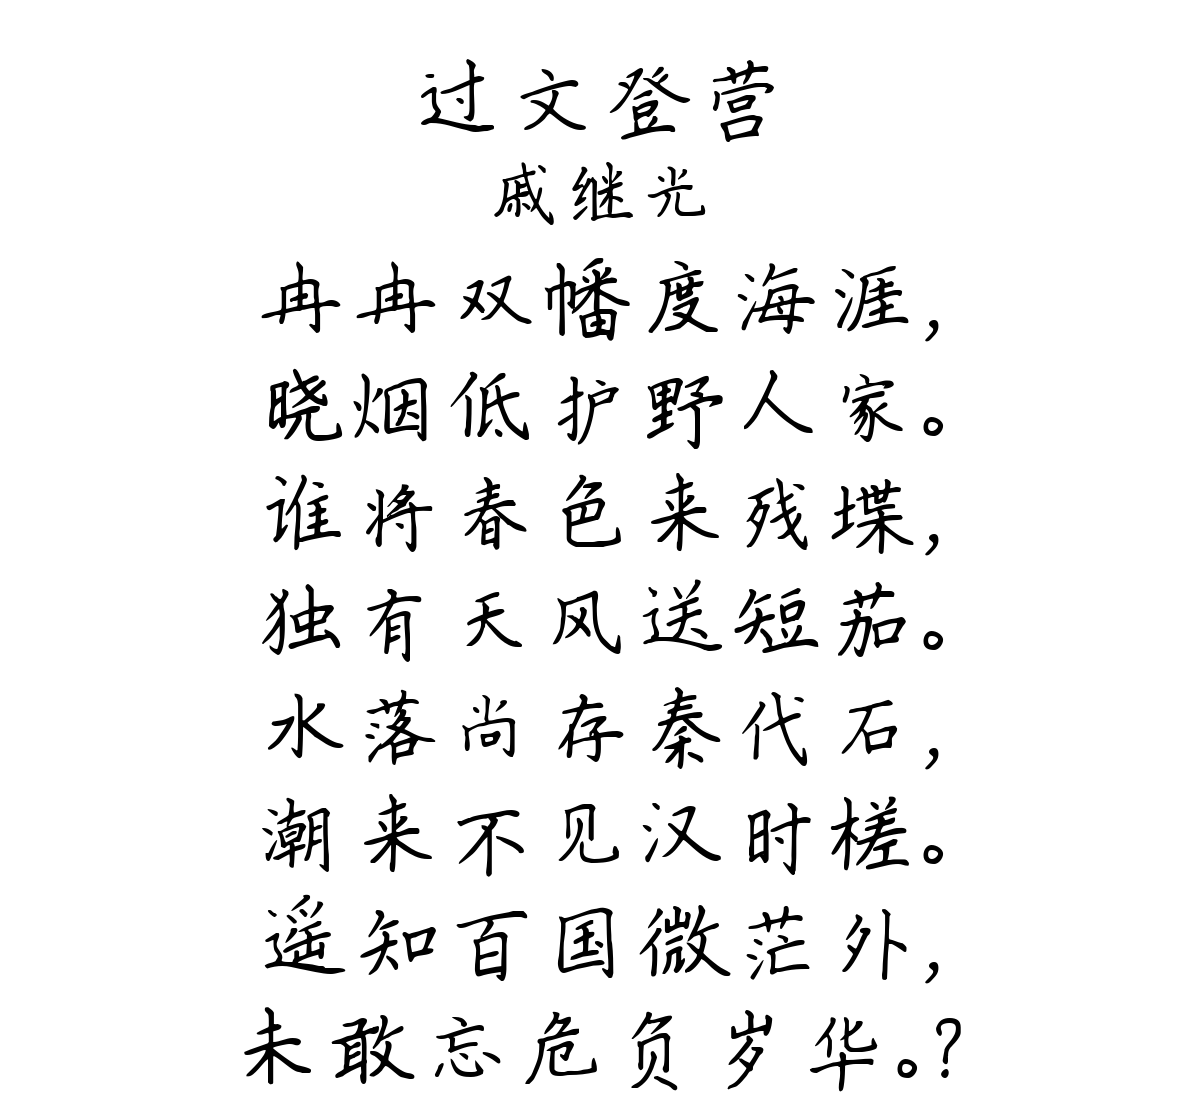 过文登营
戚继光
冉冉双幡度海涯，
晓烟低护野人家。
谁将春色来残堞，
独有天风送短茄。
水落尚存秦代石，
潮来不见汉时槎。
遥知百国微茫外，
未敢忘危负岁华。?